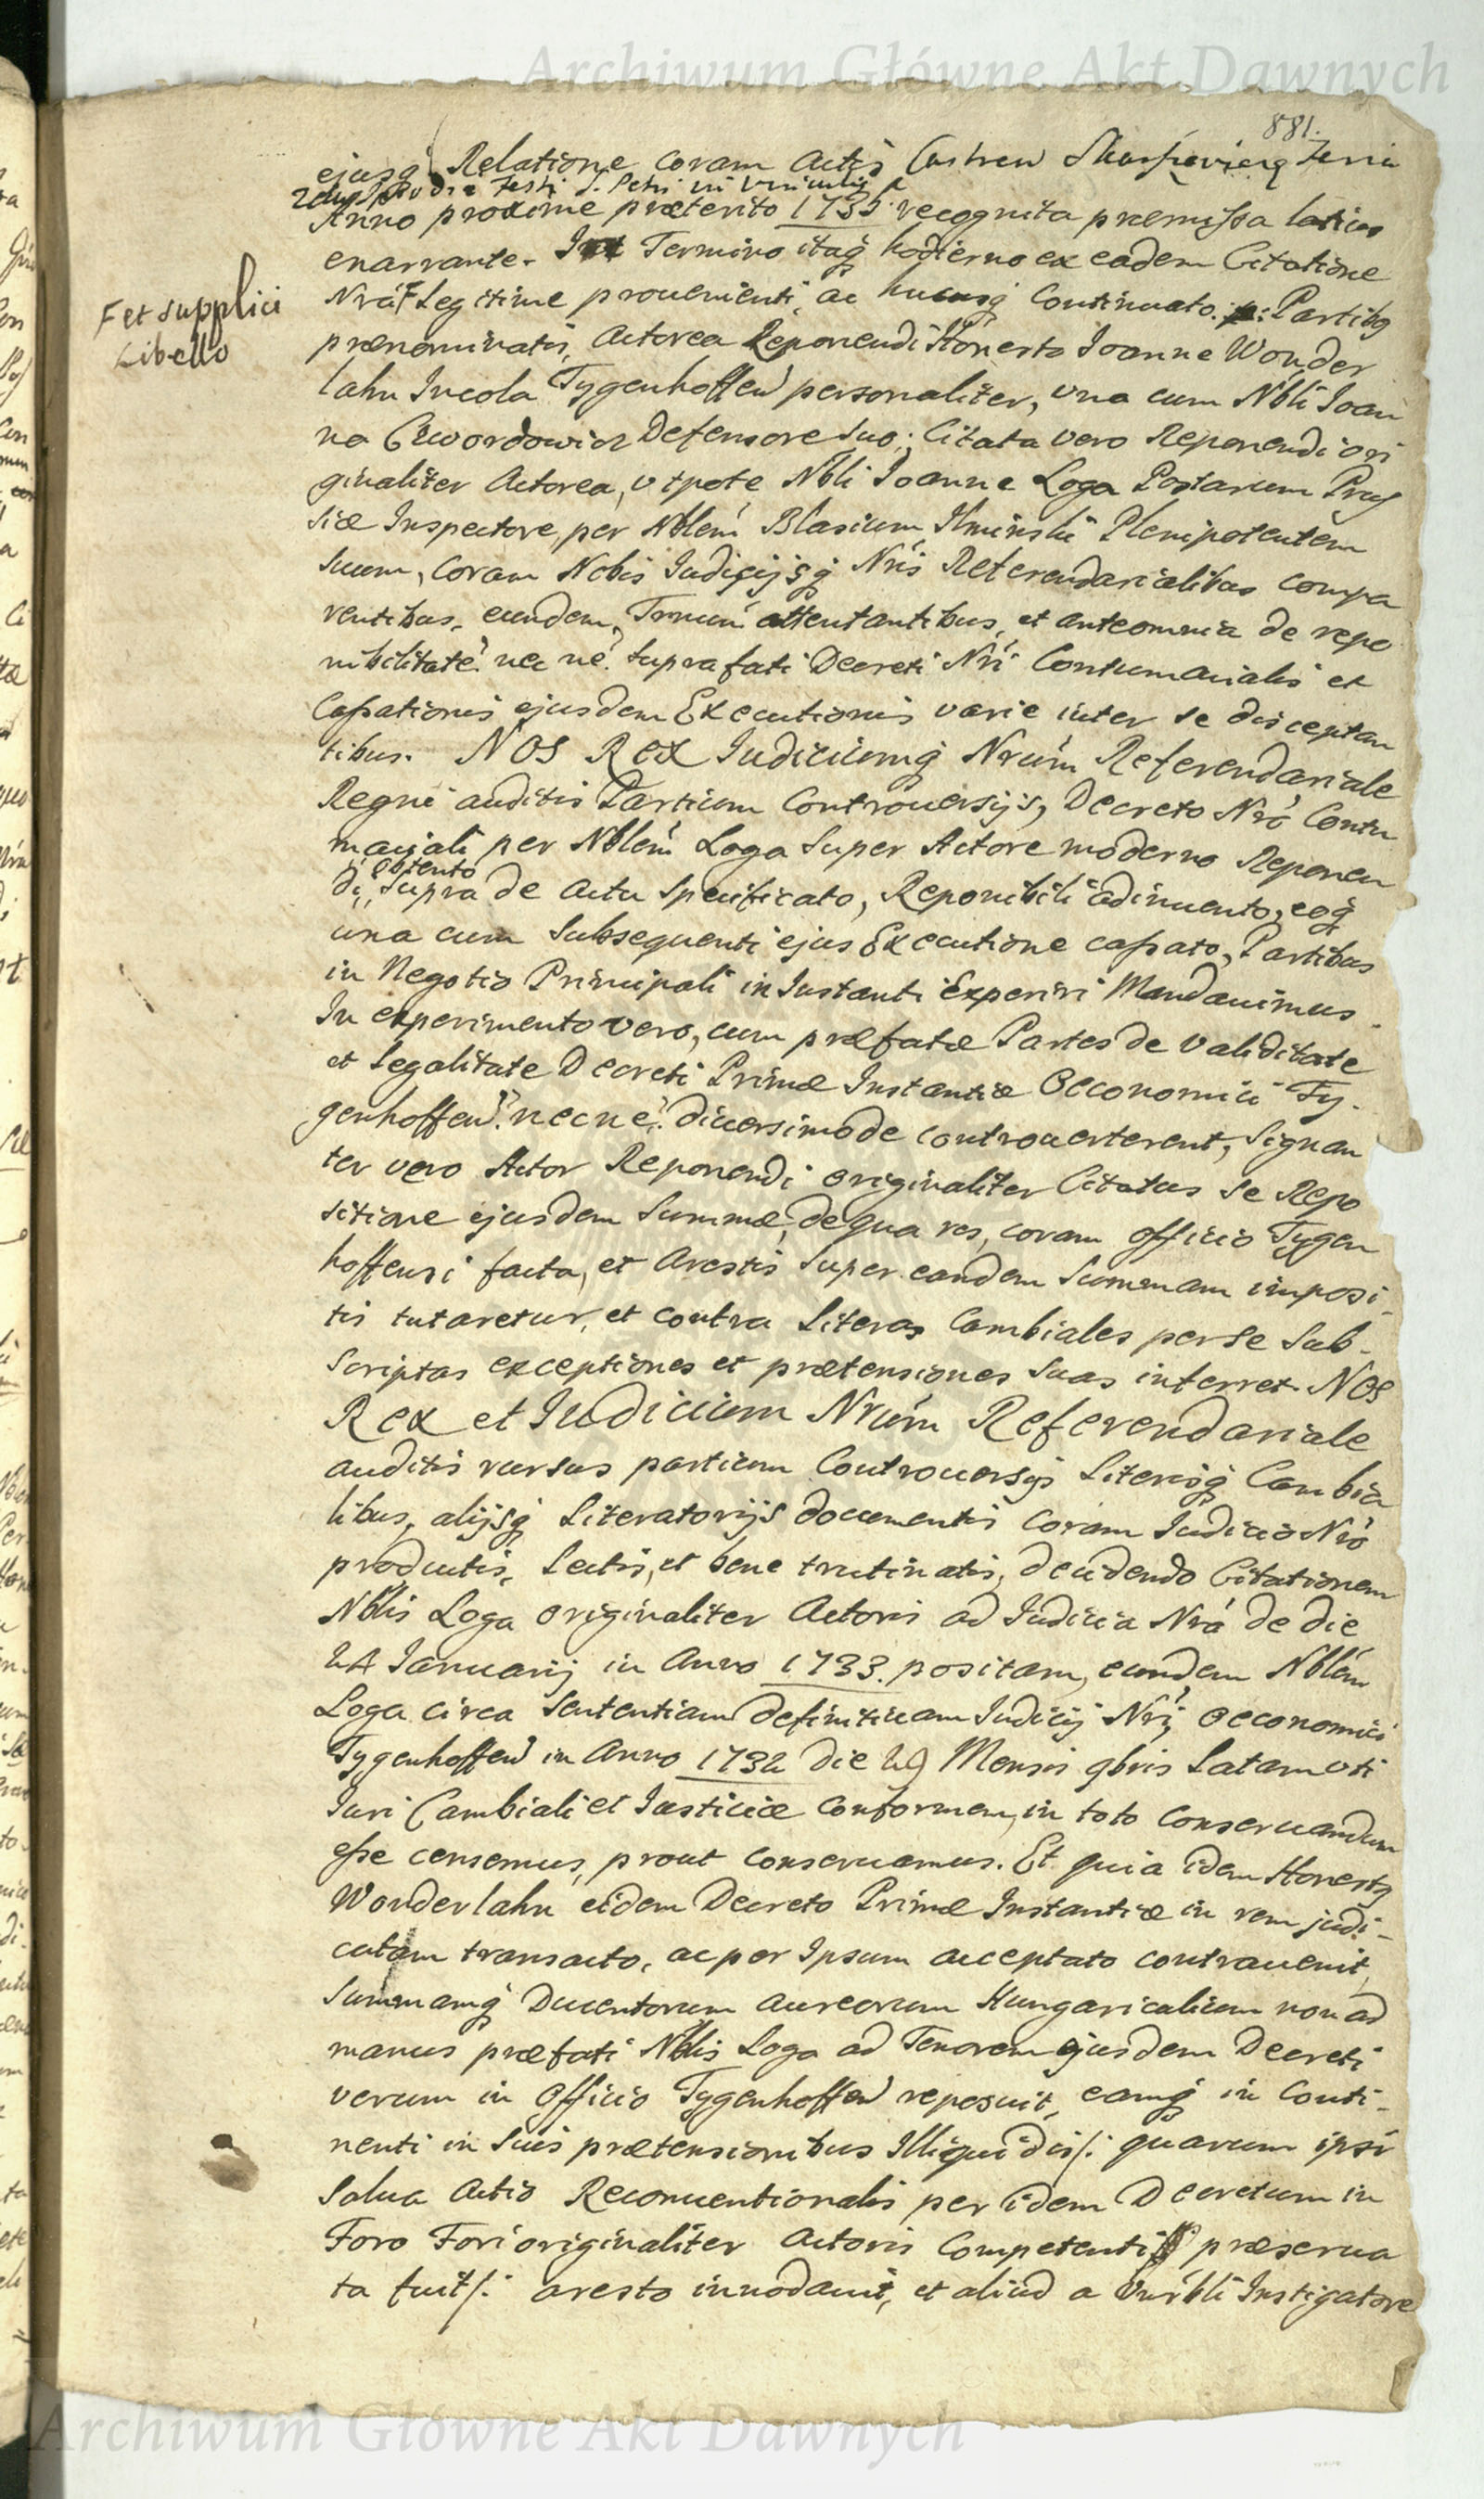 Archiwum Główne Akt Dawnych
881.
ejusq Relatione coram Actis Castren Skarszevien feria
2da Postridie Festi S. Petri in Vinculis
Anno proxime præterito 1735 recognita præmissa latius
enarrante. In Termino itaq hodierno ex eadem Citatione
F et supplici
Libello
Nrâ F Legitime provenienti ac hucusq Continuato. Partibq
prænominatis, Actorea Reponendi Honesto Joanne Wonder
lahn Incola Tygenhoffen personaliter, una cum Nbli Joan
ne Gwordowicz Defensore suo; Citata vero Reponendi ori
ginaliter Actorea, utpote Nbli Joanne Loga Postarum Prus
siæ Inspectore, per Nblem Blasium Ilminski Plenipotentem
suum, coram Nobis Judicijsq Nris Referendarialibus compa
rentibus, eundem Trnum attentantibus, et anteomnia de repo
nibilitate? nec ne? suprafati Decreti Nri Contumacialis et
Cassationis ejusdem Executionis varie inter se disceptan
tibus. NOS REX Judiciumq Nrum Referendariale
Regni auditis Partium Controversijs, Decreto Nro Contu
maciali per Nblem Loga super Actore moderno Reponen
di, obtento supra de actu specificato, Reponibili adinvento, eoq
una cum subsequenti ejus Executione cassato, Partibus
in Negotio Principali in Instanti Experiri Mandavimus.
In experimento vero, cum præfatæ Partes de validitate
et legalitate Decreti Primæ Instantiæ Oeconomici Ty-
genhoffen? necne? diversimode controverterent, signan
ter vero Actor Reponendi originaliter Citatus se Repo
sitione ejusdem summæ, de qua res, coram officio Tygen
hoffensi facta, et arestis super eandem summam imposi-
tis tutaretur, et contra Literas Cambiales per se sub-
scriptas exceptiones et prætensiones suas inferret. NOS
Rex et Judicium Nrum Referendariale
auditis rursus partium Controversijs Literisq Cambia
libus, alijsq Literatorijs documentis coram Judicio Nro
productis, Lectis, et bene trutinatis, decidendo Citationem
Nblis Loga originaliter Actoris ad Judicia Nra de die
24 Januarij in Anno 1733. positam, eundem Nblem
Loga circa sententiam definitivam Judicij Nri Oeconomici
Tygenhoffen in Anno 1732 die 29 Mensis 9bris Latam uti
Juri Cambiali et Justiciæ conformem, in toto conservandum
esse censemus, prout conservamus. Et quia idem Honestq
Wonderlahn eidem Decreto Primæ Instantiæ in rem judi-
catam transacto, ac per Ipsum acceptato contravenit,
summamq Ducentorum aureorum Hungaricalium non ad
manus præfati Nblis Loga ad Tenorem ejusdem Decreti
verum in Officio Tygenhoffen reposuit, eamq in Conti-
nenti in suis prætensionibus Illiquidis /: quarum ipsi
salva actio Reconventionalis per idem Decretum in
Foro Fori originaliter Actoris Competenti præserva
ta fuit /: aresto innodavit, et aliud a Virbli Instigatore
Archiwum Główne Akt Dawnych